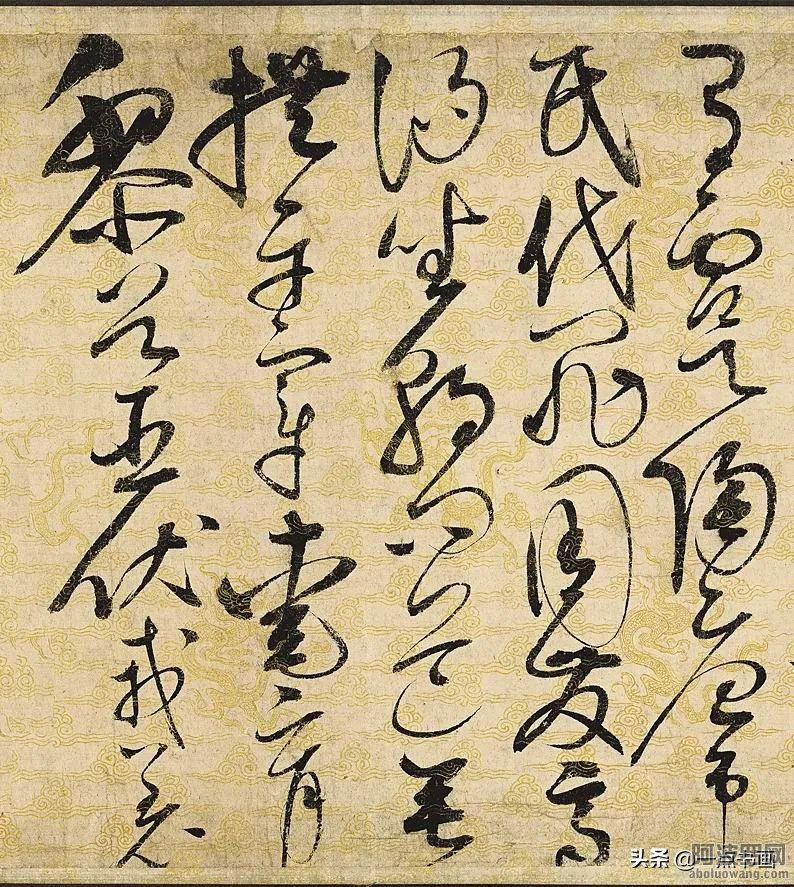 有虞陶唐弔
民伐罪周發商
湯坐朝問道垂
拱平章愛育
黎首臣伏戎羌
头条 @一点书画
阿波罗网
aboluowang.com